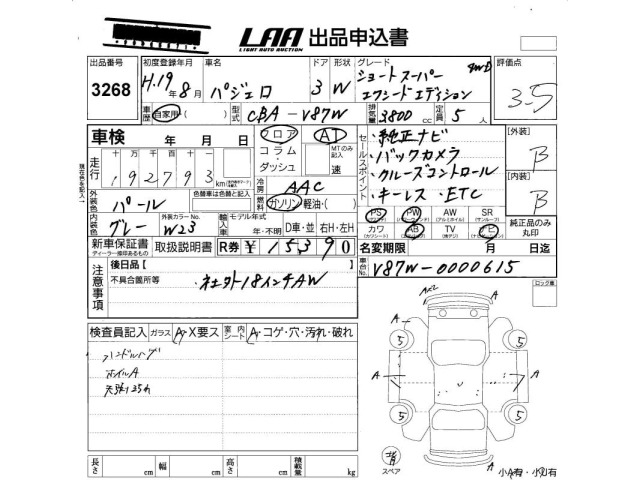 LAA 出品申込書
LIGHT AUTO AUCTION
出品番号 初度登録年月 車名 ドア 形状 グレード 評価点
3268 H.19年8月 パジェロ 3 W ショートスーパー 4WD 3.5
エクシードエディション
車歴 自家用・( ) 型式 CBA-V87W 排気量 3800cc 定員 5人
車検 年 月 日 フロア AT セールスポイント ・純正ナビ 【外装】
コラム・ MTのみ記入 ・バックカメラ B
現在色を記入 走行 十万 万 千 百 十 一 ダッシュ 速 ・クルーズコントロール
192793 km 冷房 AAC ・キーレス・ETC 【内装】
外装色 パール 色替車は色替と記入 燃料 ガソリン・軽油・( ) PS PW AW SR B
内装色 グレー 外装カラーNo. W23 輸入車 モデル年式 年・不明 D車・並 右H・左H カワ AB TV ナビ 純正品のみ丸印
新車保証書 取扱説明書 R券 ¥15390 名変期限 月 日迄
ディーラー捺印あるもの
注意事項 後日品【 】 車台No. V87W-0000615
不具合箇所等 ・社外18インチAW
ロック有
検査員記入 ガラス A・X要ス 室内シート A・コゲ・穴・汚れ・破れ
ハンドルハゲ
ホイルA
天張り汚れ
A
A A
5 5
A
5 5
A
スペア
小A有・小U有
長さ cm 幅 cm 高さ cm 積載量 kg